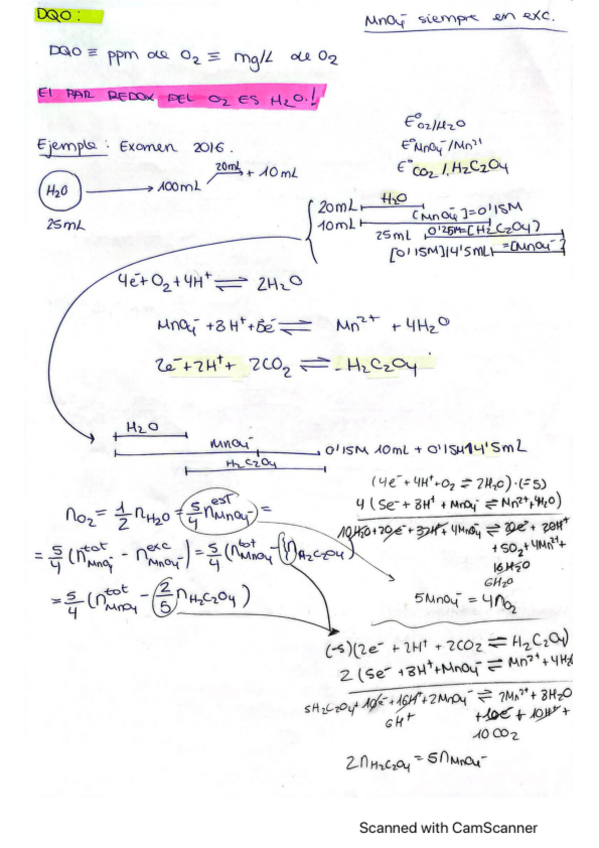 DQO:
MnO₄⁻ siempre en exc.
DQO ≡ ppm de O₂ ≡ mg/L de O₂
El PAR REDOX DEL O₂ ES H₂O.!
E°O₂/H₂O
E°MnO₄⁻/Mn²⁺
E°CO₂/H₂C₂O₄
Ejemplo: Examen 2016.
H₂O → 100mL 20mL + 10mL
25mL
20mL H₂O
10mL [MnO₄⁻]=0'15M
25mL 0'25M=[H₂C₂O₄]
[0'15M]14'5mL =[MnO₄⁻]
4e⁻+O₂+4H⁺ ⇌ 2H₂O
MnO₄⁻+8H⁺+5e⁻ ⇌ Mn²⁺ + 4H₂O
2e⁻+2H⁺+ 2CO₂ ⇌ H₂C₂O₄
H₂O
MnO₄⁻ 0'15M 10mL + 0'15M 14'5mL
H₂C₂O₄
(4e⁻+4H⁺+O₂ ⇌ 2H₂O)·(-5)
4(5e⁻+8H⁺+MnO₄⁻ ⇌ Mn²⁺+4H₂O)
10H₂O+20e⁻+32H⁺+4MnO₄⁻ ⇌ 20e⁻+20H⁺
+5O₂+4Mn²⁺+
16H₂O
6H₂O
5MnO₄⁻ = 4nO₂
nO₂ = 1/2 nH₂O = 5/4 nMnO₄⁻ est =
= 5/4 (nMnO₄⁻ tot - nMnO₄⁻ exc) = 5/4 (nMnO₄⁻ tot - { nH₂C₂O₄)
= 5/4 (nMnO₄ tot - 2/5 nH₂C₂O₄)
(-5)(2e⁻ + 2H⁺ + 2CO₂ ⇌ H₂C₂O₄)
2(5e⁻+8H⁺+MnO₄⁻ ⇌ Mn²⁺+4H₂
5H₂C₂O₄+10e⁻+16H⁺+2MnO₄⁻ ⇌ 2Mn²⁺+8H₂O
6H⁺ +10e⁻+10H⁺+
10CO₂
2nH₂C₂O₄ = 5nMnO₄⁻
Scanned with CamScanner